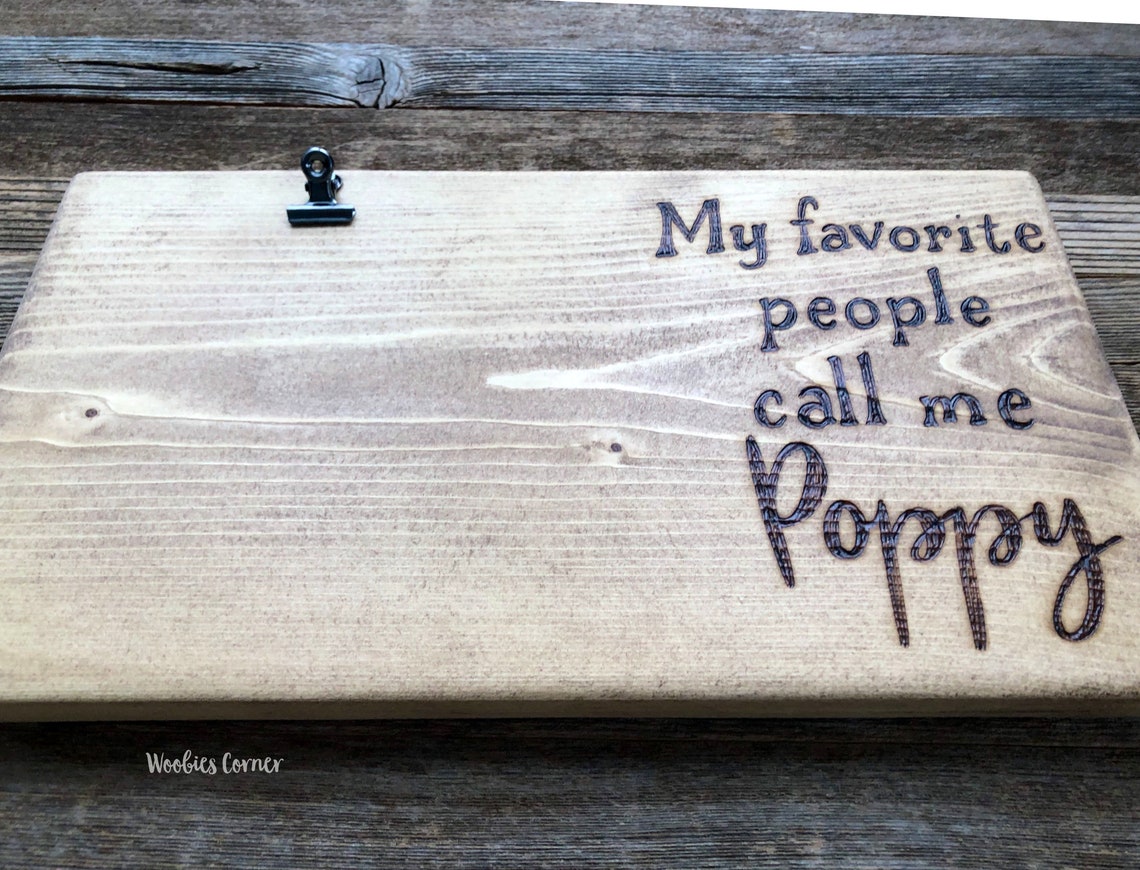 My favorite
people
call me
Poppy
Woobies Corner